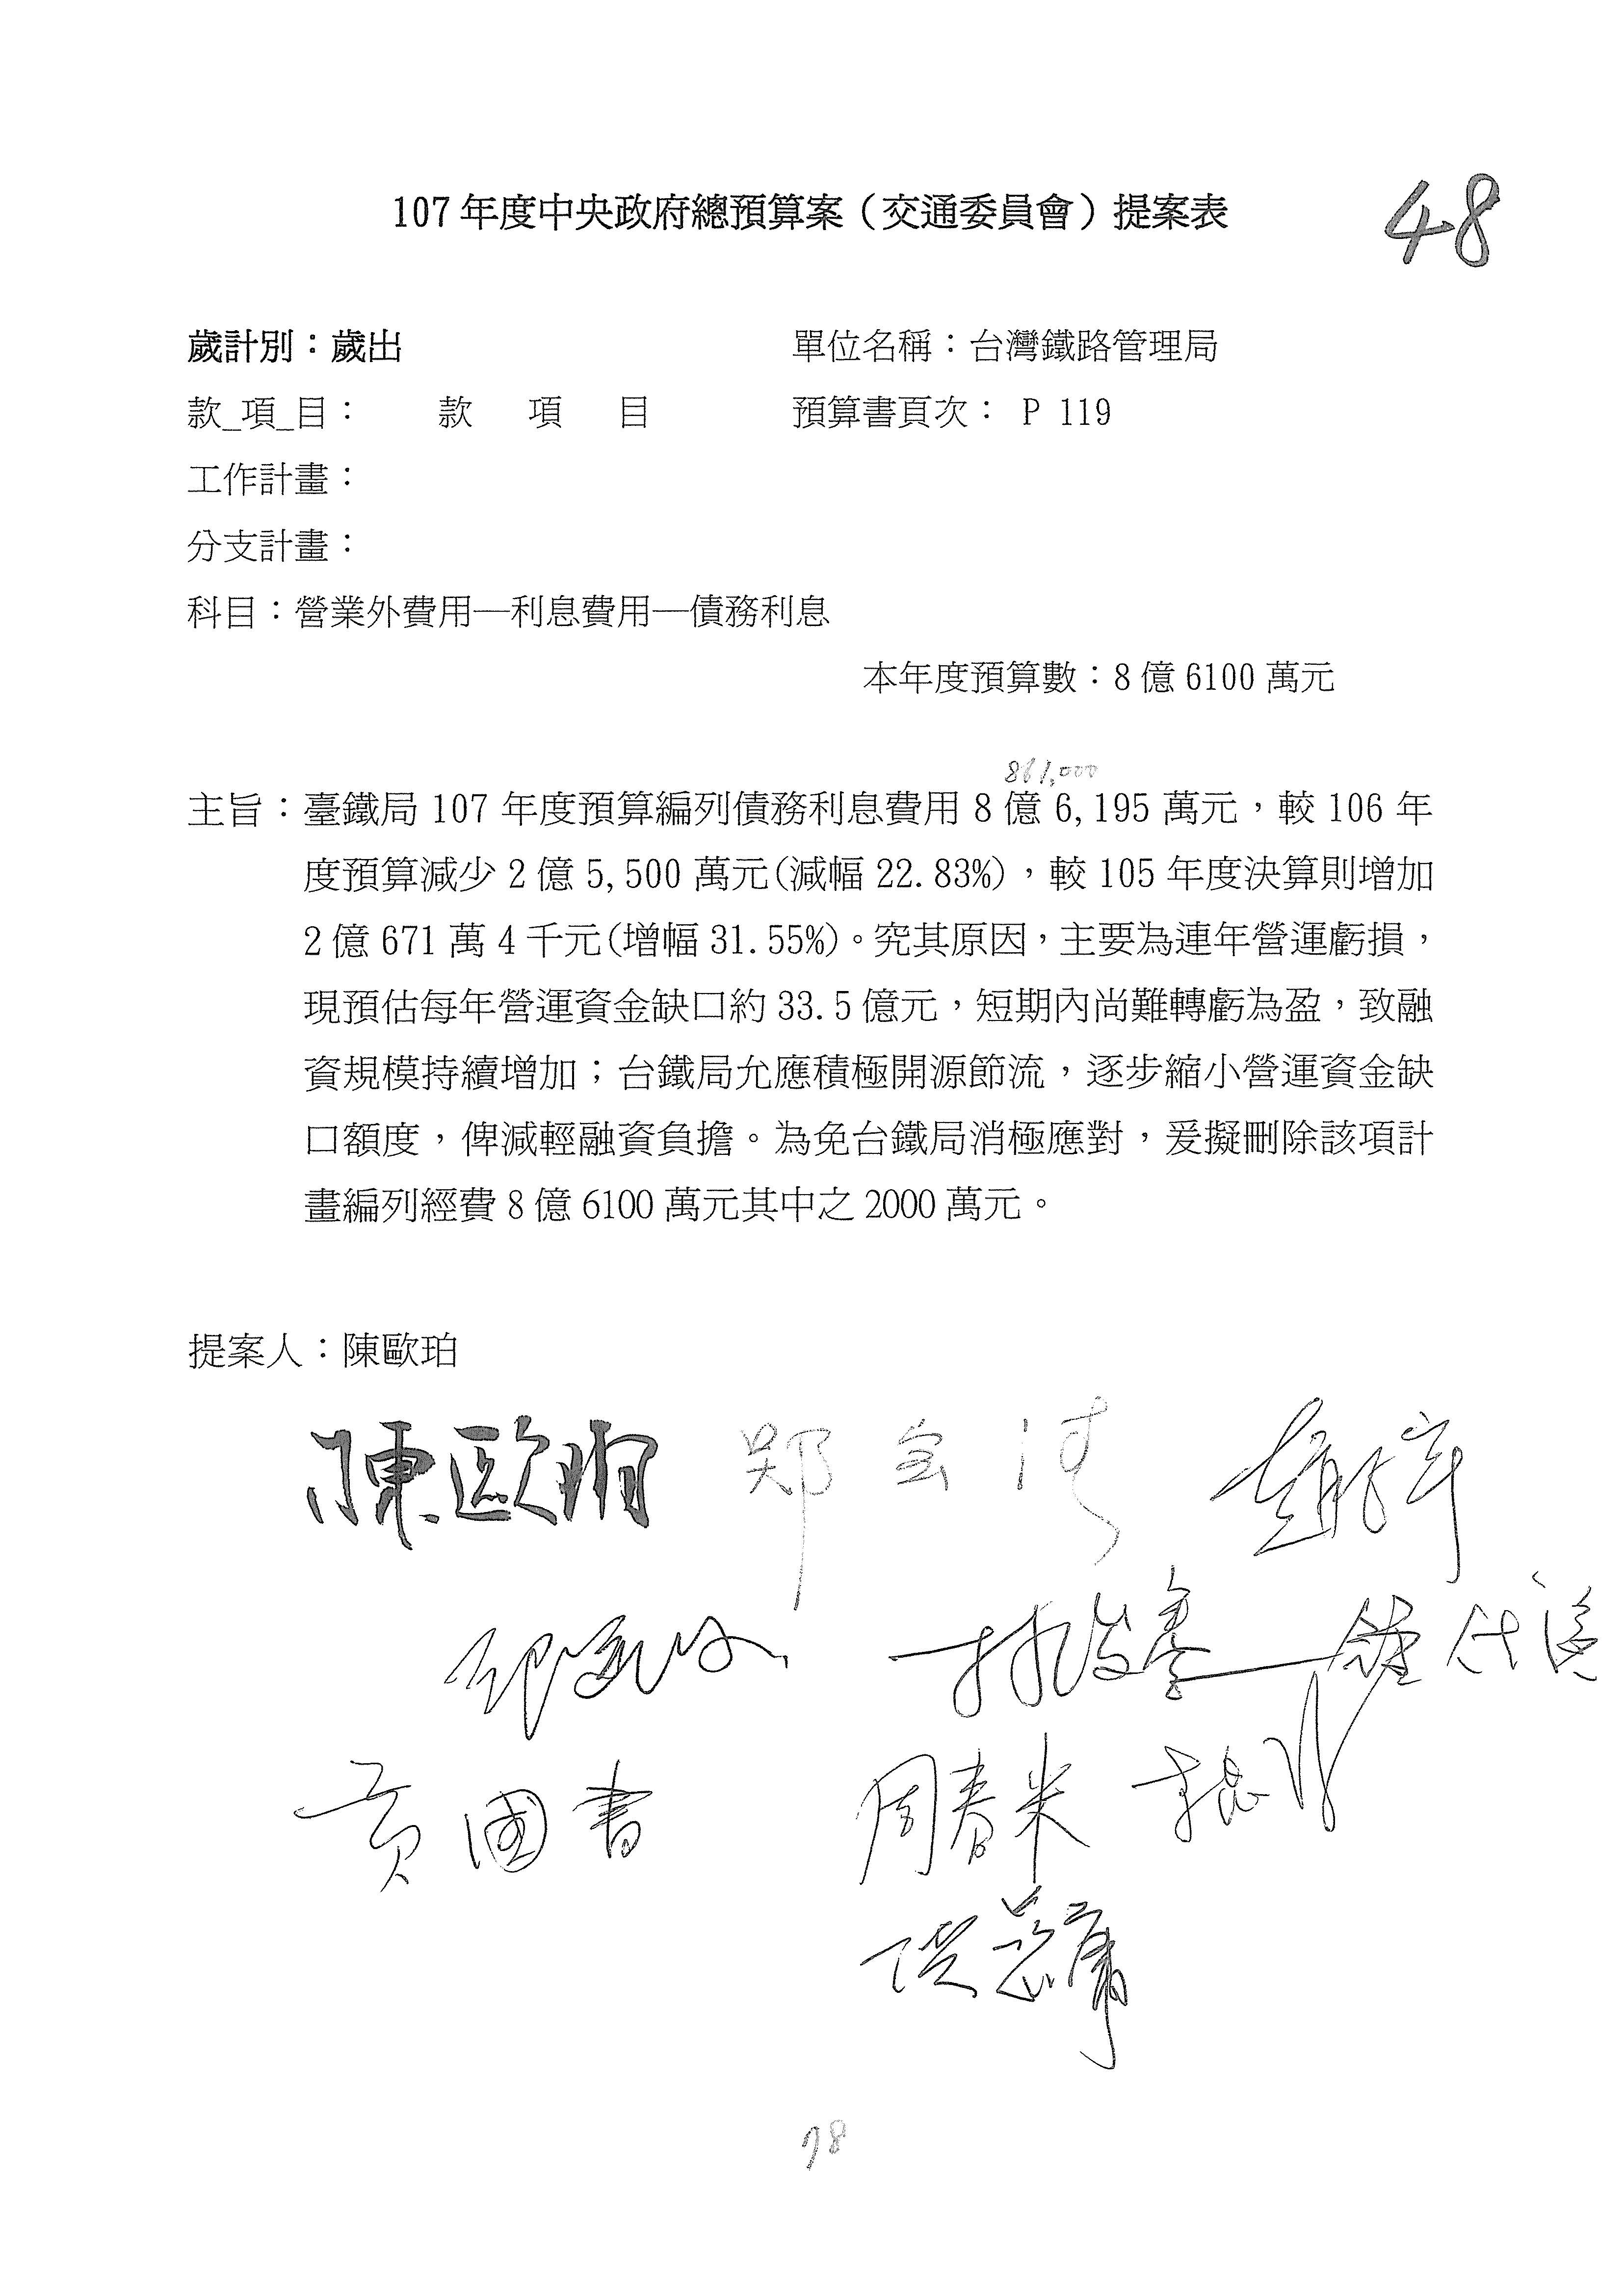 107年度中央政府總預算案（交通委員會）提案表
48
歲計別：歲出 單位名稱：台灣鐵路管理局
款_項_目： 款 項 目 預算書頁次： P 119
工作計畫：
分支計畫：
科目：營業外費用—利息費用—債務利息
本年度預算數：8億6100萬元
861,000
主旨：臺鐵局107年度預算編列債務利息費用8億6,195萬元，較106年
度預算減少2億5,500萬元(減幅22.83%)，較105年度決算則增加
2億671萬4千元(增幅31.55%)。究其原因，主要為連年營運虧損，
現預估每年營運資金缺口約33.5億元，短期內尚難轉虧為盈，致融
資規模持續增加；台鐵局允應積極開源節流，逐步縮小營運資金缺
口額度，俾減輕融資負擔。為免台鐵局消極應對，爰擬刪除該項計
畫編列經費8億6100萬元其中之2000萬元。
提案人：陳歐珀
陳歐珀 鄭 清
林俊憲
黃國書 周春米
78